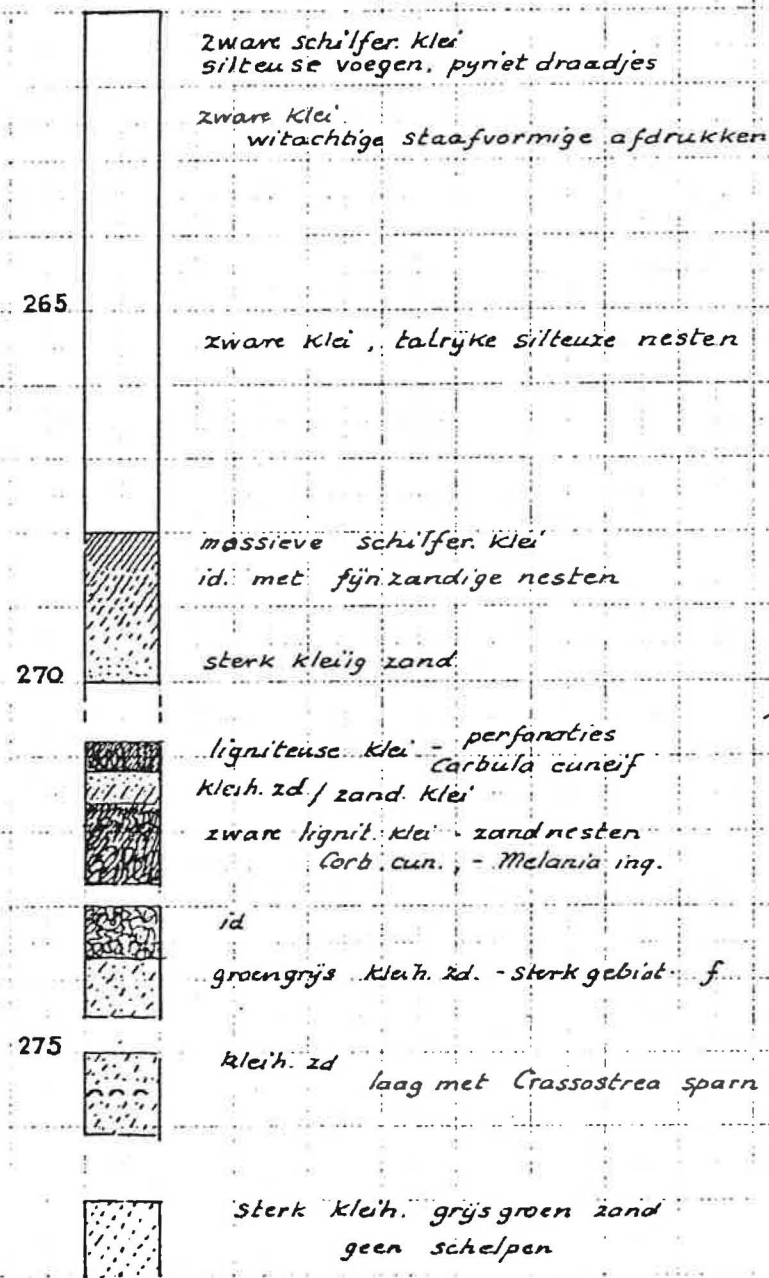 zware schilfer. klei
silteuse voegen, pyriet draadjes
zware klei.
witachtige staafvormige afdrukken
265
zware klei, talrijke silteuze nesten
massieve schilfer. klei
id. met fijnzandige nesten
sterk kleiïg zand
270
ligniteuse klei - perforaties
Corbula cuneif
kleih. zd / zand. klei
zware lignit. klei - zandnesten
Corb. cun., - Melania inq.
id
groengrijs kleih. zd. - sterk gebiot. f
275
kleih. zd
laag met Crassostrea sparn
sterk kleih. grijsgroen zand
geen schelpen